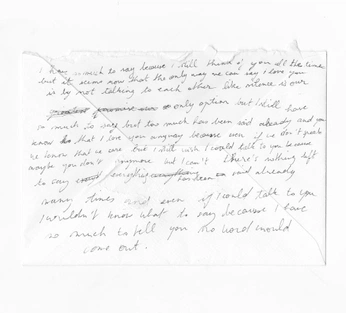 I have so much to say because I still think of you all the time
but it seems now that the only way we can say I love you
is by not talking to each other like silence is our
only option but I still have
so much to say but too much has been said already and you
know that I love you anyway because even if we don't speak
we know that we care but I still wish I could talk to you because
maybe you don't anymore but I can't there's nothing left
to say everything has been said already
many times and even if I could talk to you
I wouldn't know what to say because I have
so much to tell you no word would
come out.